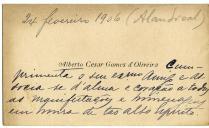 24 fevereiro 1906 (Mandical)
Alberto Cesar Gomes d'Oliveira Cum-
primenta o seu Exmo Amigo e as-
socia-se d'alma e coração a todas
as manifestações e homenagens
em honra de tão alto Espirito.